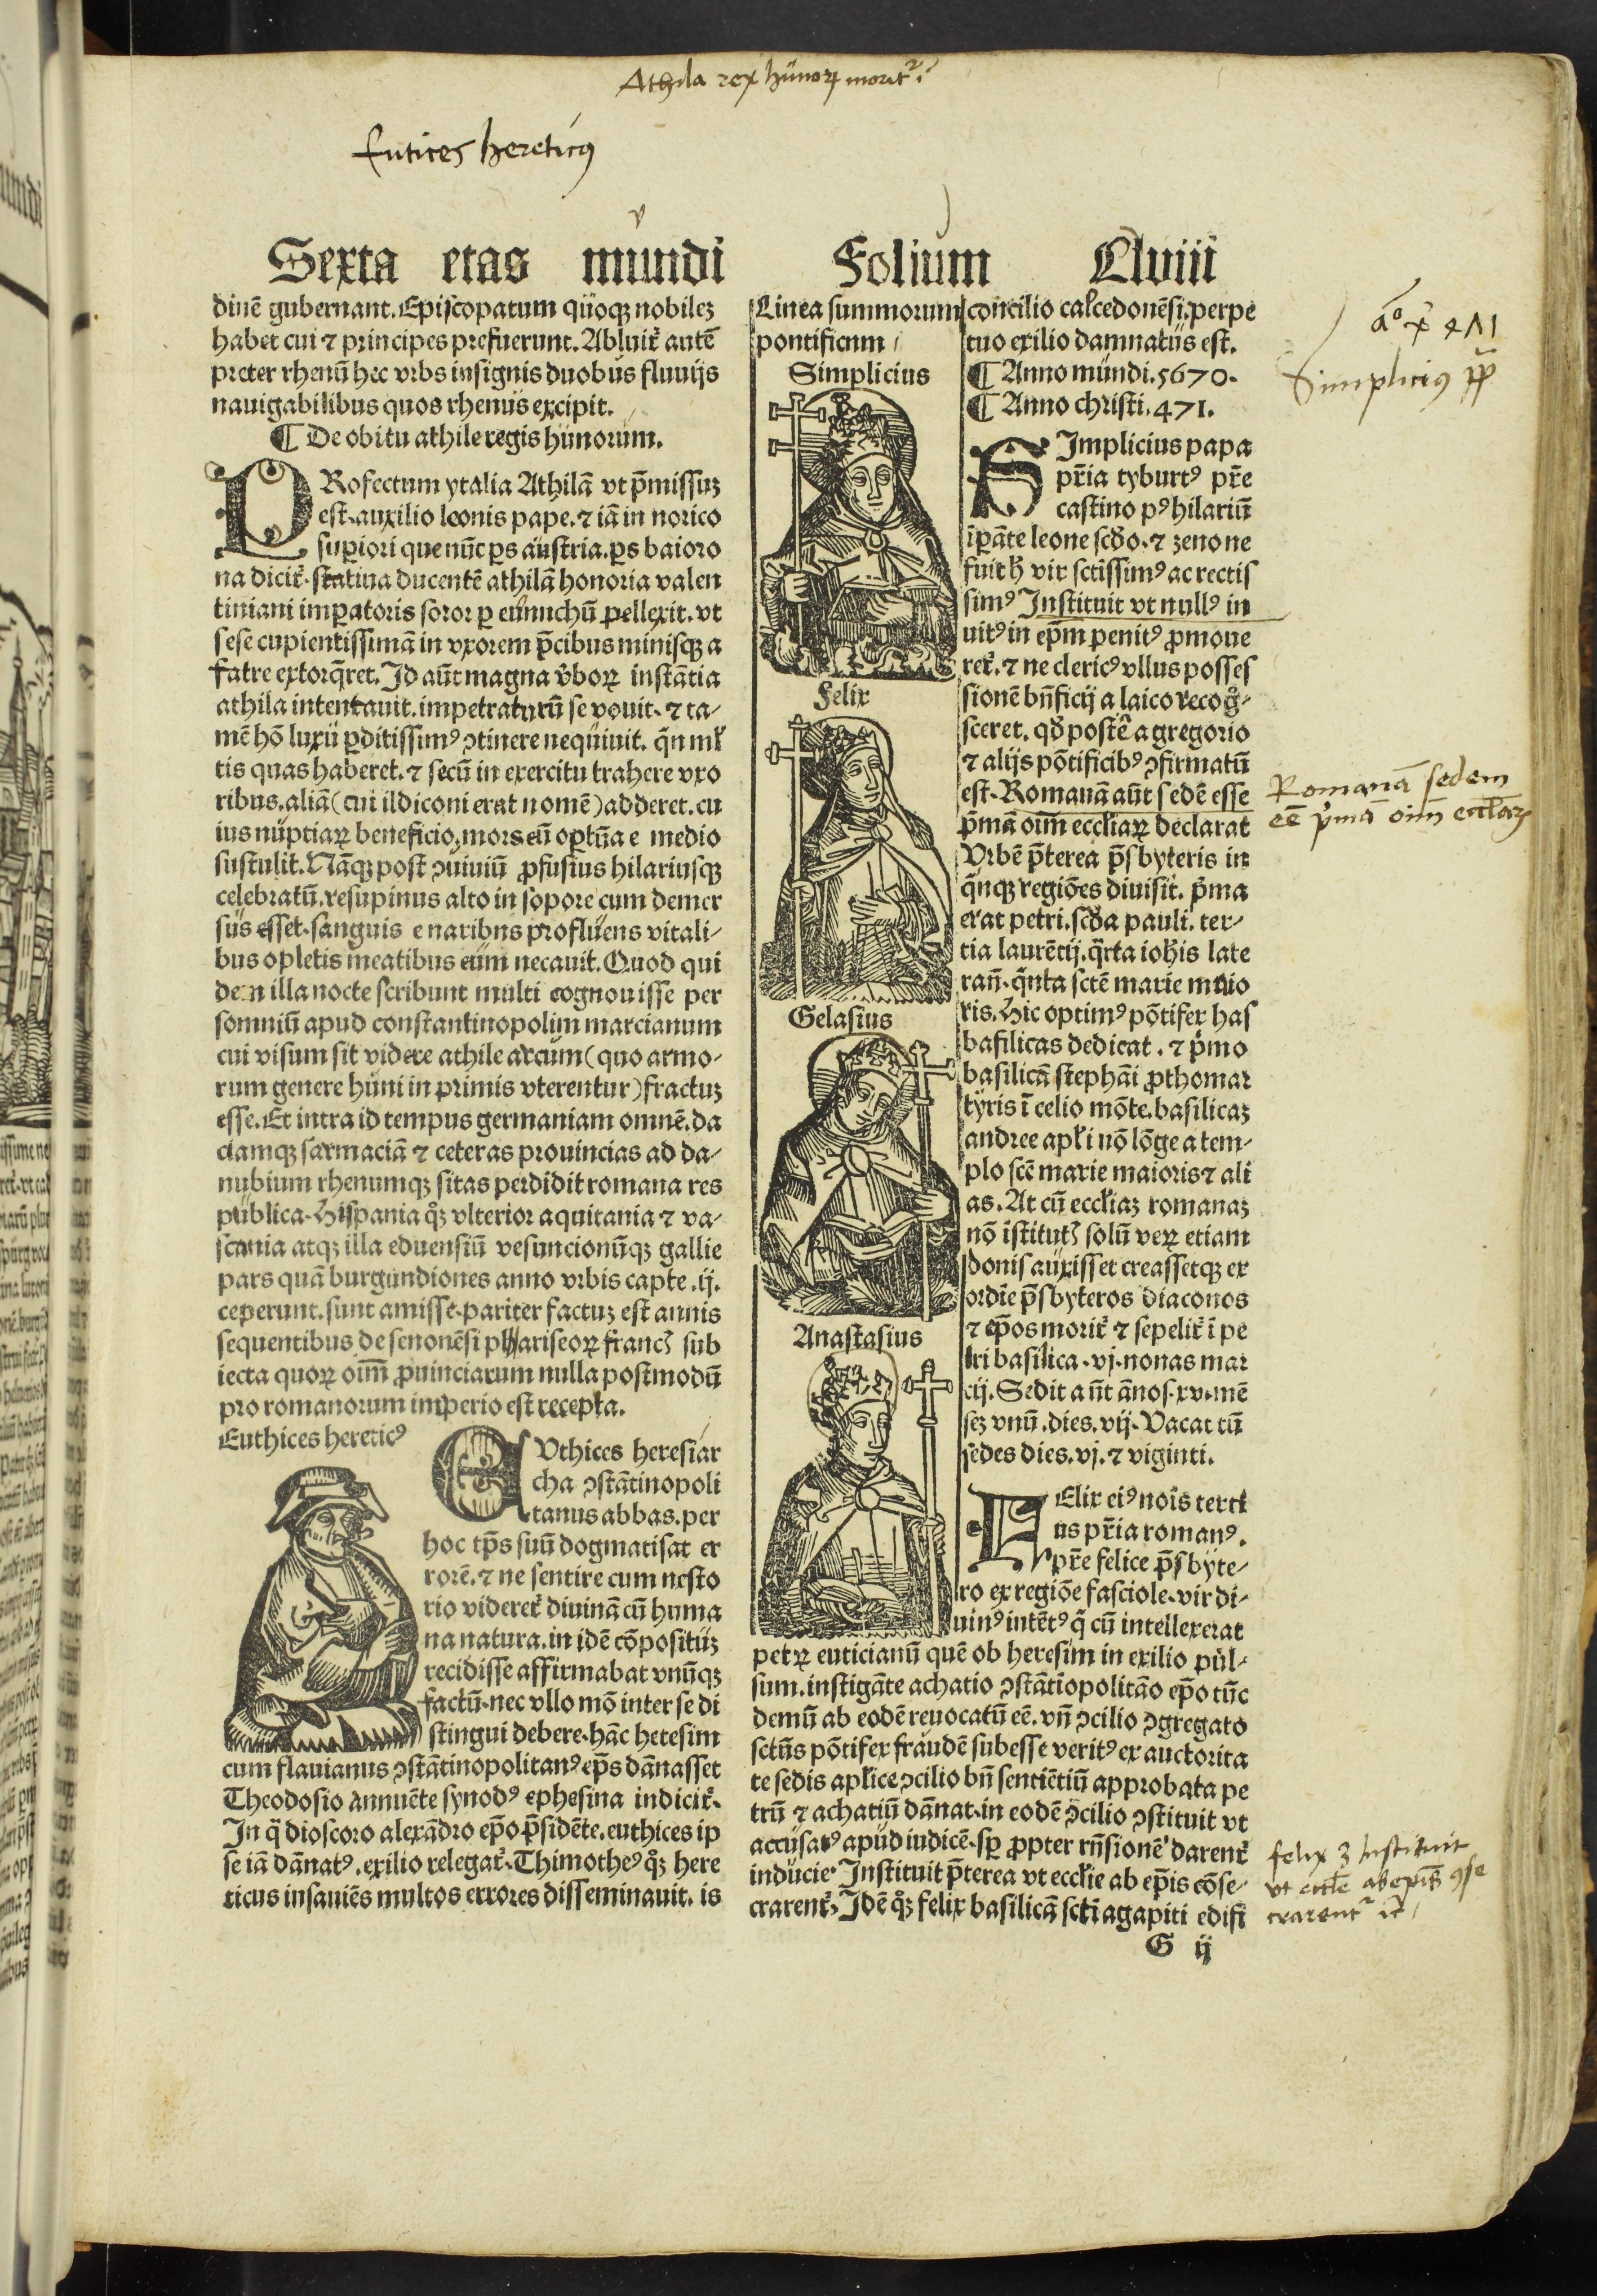 Athila rex hūnoꝝ morit᷑ i
Eutices hereticꝰ
Sexta etas mundi Folium Clviii
dinē gubernant. Episcopatum quoqꝫ nobileꝫ
habet cui ⁊ principes prefuerunt. Abluit᷑ autē
preter rhenū hec vrbs insignis duobus fluuijs
nauigabilibus quos rhenus excipit.
¶ De obitu athile regis hunorum.
PRofectum ytalia Athilā vt p̄missuꝫ
est. auxilio leonis pape. ⁊ iā in norico
supiori que nūc ꝑs austria. ꝑs baioro
na dicit᷑. statiua ducentē athilā honoria valen
tiniani imꝑatoris soror ꝑ eunuchū pellexit. vt
sese cupientissimā in vxorem p̄cibus minisqꝫ a
fatre extorq̄ret. Id aūt magna v̄boꝝ instātia
athila intentauit. impetraturū se vouit. ⁊ ta-
mē hō luxu ꝑditissimꝰ ꝯtinere nequiuit. q̄n ml̄
tis quas haberet. ⁊ secū in exercitu trahere vxo
ribus. aliā (cui ildiconi erat nomē) adderet. cu
ius nuptiaꝝ beneficio. mors eū oꝑtūa e medio
sustulit. Nāqꝫ post ꝯuiuiū ꝓfusius hilariusqꝫ
celebratū. resupinus alto in sopore cum demer
sus esset. sanguis e naribus profluens vitali-
bus opletis meatibus eum necauit. Quod qui
dem illa nocte scribunt multi cognouisse per
somniū apud constantinopolim marcianum
cui visum sit videre athile arcum (quo armo-
rum genere huni in primis vterentur) fractuꝫ
esse. Et intra id tempus germaniam omnē. da
ciamqꝫ sarmaciā ⁊ ceteras prouincias ad da-
nubium rhenumqꝫ sitas perdidit romana res
publica. Hispania qꝫ vlterior aquitania ⁊ va-
scania atqꝫ illa eduensiū vesuncionūqꝫ gallie
pars quā burgundiones anno vrbis capte .ij.
ceperunt. sunt amisse. pariter factuꝫ est annis
sequentibus de senonēsi phariseoꝝ franc̉ sub
iecta quoꝝ oim̄ ꝓuinciarum nulla postmodū
pro romanorum imperio est recepta.
Euthices hereticꝰ
EVthices heresiar
cha ꝯstātinopoli
tanus abbas. per
hoc tp̄s suū dogmatisat er
rorē. ⁊ ne sentire cum nesto
rio videret᷑ diuinā cū huma
na natura. in idē cōpositūꝫ
recidisse affirmabat vnūqꝫ
factū. nec vllo mō inter se di
stingui debere. hāc heresim
cum flauianus ꝯstātinopolitanꝰ ep̄s dānasset
Theodosio annuēte synodꝰ ephesina indicit᷑.
In q̄ dioscoro alexādro ep̄o p̄sidēte. euthices ip
se iā dānatꝰ. exilio relegat᷑. Thimotheꝰ qꝫ here
ticus insaniēs multos errores disseminauit. is
Linea summorum
pontificum
Simplicius
Felix
Gelasius
Anastasius
concilio calcedonēsi. perpe
tuo exilio damnatus est.
¶ Anno mundi. 5670.
¶ Anno christi. 471.
SImplicius papa
pr̄ia tyburtꝰ pr̄e
castino pꝰ hilariū
īpāte leone scd̄o. ⁊ zenone
fuit hͥ vir sctissimꝰ ac rectis
simꝰ Instituit vt nullꝰ in
uitꝰ in ep̄m penitꝰ ꝓmoue
ret᷑. ⁊ ne clericꝰ vllus posses
sionē bn̄ficij a laico recog̉-
sceret. qd̄ postē a gregorio
⁊ alijs pōtificibꝰ ꝯfirmatū
est. Romanā aūt sedē esse
p̄mā oim̄ eccl̄iaꝝ declarat
Vrbē p̄terea p̄sbyteris in
q̄nqꝫ regiōes diuisit. p̄ma
erat petri. scd̄a pauli. ter-
tia laurētij. q̄rta ioh̄is late
ran̄. q̄nta sctē marie maio
ris. Hic optimꝰ pōtifex has
basilicas dedicat. ⁊ p̄mo
basilicā stephāi ꝓthomar
tyris ī celio mōte. basilicaꝫ
andree apl̄i nō lōge a tem-
plo scē marie maioris ⁊ ali
as. At cū eccl̄iaꝫ romanaꝫ
nō īstitut̉ solū veꝝ etiam
donis auxisset creassetqꝫ ex
ordīe p̄sbyteros diaconos
⁊ ep̄os morit᷑ ⁊ sepelit᷑ ī pe
tri basilica. vj. nonas mar
cij. Sedit aūt ānos. xv. mē
seꝫ vnū. dies. vij. Vacat tū
sedes dies. vj. ⁊ viginti.
FElix eiꝰ nois̄ terti
us pr̄ia romanꝰ.
pr̄e felice p̄sbyte-
ro ex regiōe fasciole. vir di-
uinꝰ intētꝰ q̄ cū intellexerat
petꝝ euticianū quē ob heresim in exilio pul-
sum. instigāte achatio ꝯstātiopolitāo ep̄o tūc
demū ab eodē reuocatū eē. vn̄ ꝯcilio ꝯgregato
sctūs pōtifex fraudē subesse veritꝰ ex auctorita
te sedis apl̄ice ꝯcilio bn̄ sentiētiū approbata pe
trū ⁊ achatiū dānat. in eodē ꝯcilio ꝯstituit vt
accusatꝰ apud iudicē. sꝑ ꝓpter rn̄sionē darent᷑
inducie. Instituit p̄terea vt eccl̄ie ab ep̄is cōse-
crarent᷑. Idē qꝫ felix basilicā scti agapiti edifi
G ij
āo xͥ 471
Simplicius pp̄
Romanā sedem
eē p̄mā oīm eccl̄iaꝝ
felix 3 Instituit
vt eccl̄ie ab ep̄is ꝯse
crarent᷑ ic̄